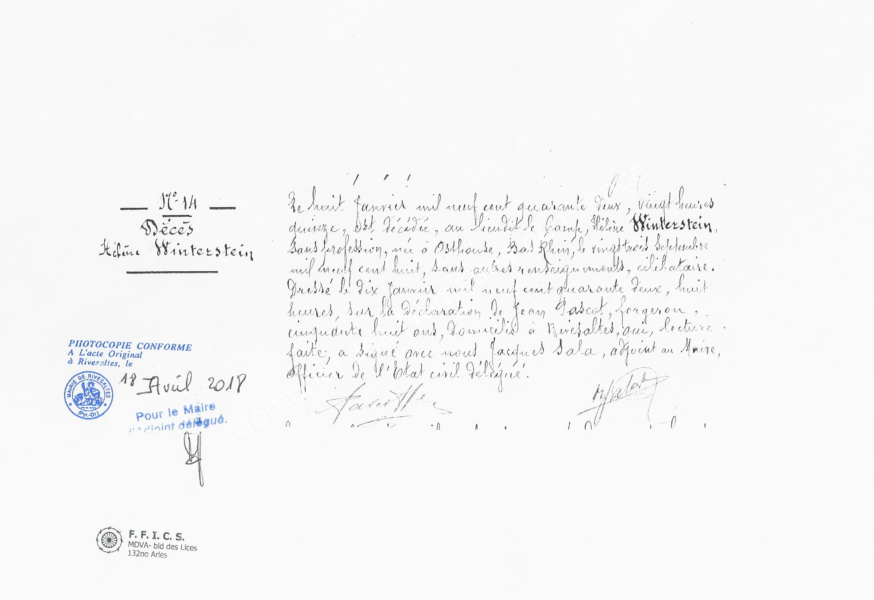 N° 14
Décès
Hélène Winterstein
Le huit Janvier mil neuf cent quarante deux, vingt heures
quinze, est décédée, au lieudit le Camp, Hélène Winterstein,
sans profession, née à Osthouse, Bas Rhin, le vingt trois Septembre
mil neuf cent huit, sans autres renseignements, célibataire.
Dressé le dix Janvier mil neuf cent quarante deux, huit
heures, sur la déclaration de Jean Pascot, forgeron,
cinquante huit ans, domicilié à Rivesaltes, qui, lecture
faite, a signé avec nous Jacques Sala, adjoint au Maire,
Officier de l'Etat civil délégué.
PHOTOCOPIE CONFORME
A L'acte Original
à Rivesaltes, le
18 Avril 2018
MAIRIE DE RIVESALTES
(Pyr.-Or.)
Pour le Maire
l'adjoint délégué.
F.F.I.C.S.
MDVA- bld des Lices
13200 Arles